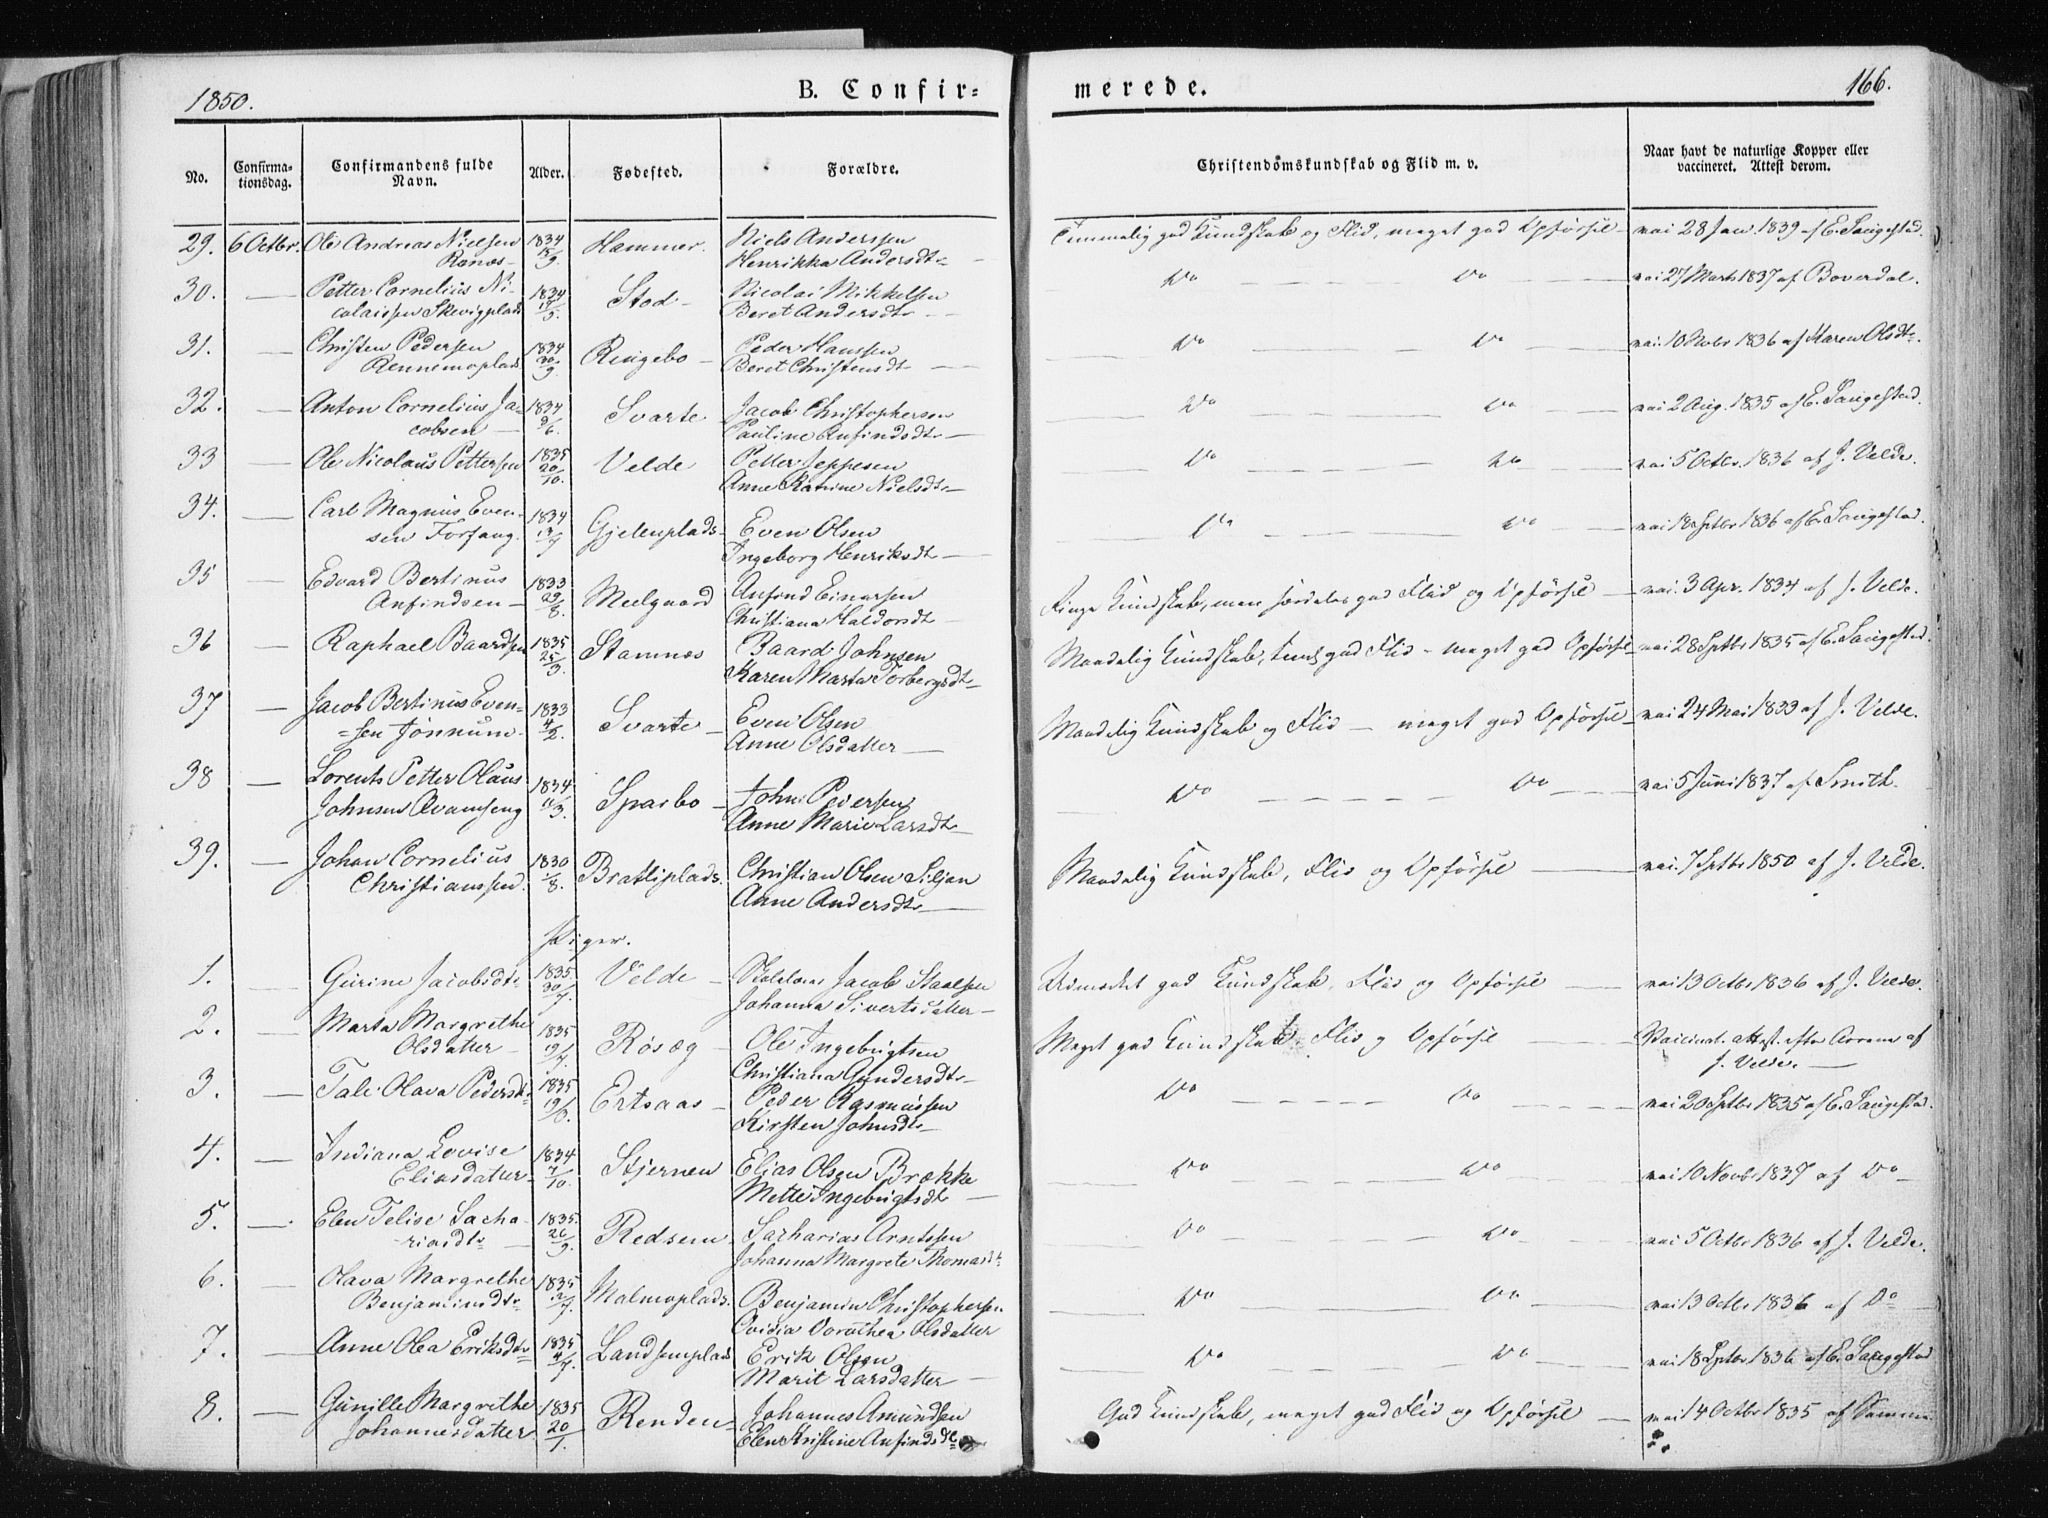 1850.
B. Confir=
merede.
166.
No.
Confirma-
tionsdag.
Confirmandens fulde
Navn.
Alder.
Fødested.
Forældre.
Christendomskundskab og Flid m. v.
Naar havt de naturlige Kopper eller
vaccineret. Attest derom.
29. 6 Octbr. Ole Andreas Nielsen 1834 Hammer. Niels Anderssen Temmelig god Kundskab og Flid, meget god Opførsel vai 28 Jan. 1839 af E. Saugestad.
Ranæs 18/9. Henrikka Andersdtr
30. Petter Cornelius Ni- 1834 Stod Nicolai Mikkelsen Do Do vai 27 Marts 1837 af Boverdal.
colaissen Skevigplads 19/5. Beret Andersdtr
31. Christen Pedersen 1834 Ringebo Peder Hanssen Do Do vai. 10 Novbr 1836 af Maren Olsdtr.
Rennemoplads 30/9. Beret Christensdtr
32. Anton Cornelius Ja- 1834 Svarte Jacob Christophersen Do Do vai 2 Aug. 1835 af E. Saugestad.
cobsen 9/6. Pauline Anfindsdtr
33 Ole Nicolaus Pettersen 1835 Velde Petter Jeppesen Do Do vai 5 Octbr. 1836 af J. Velde.
20/10. Anne Karine Nielsdtr
34. Carl Magnus Even- 1834 Gjelenplads Even Olsen Do Do vai 18 Septbr 1836 af E. Saugestad.
sen Forfang. 13/7 Ingeborg Henriksdtr
35 Edvard Bertinus 1833 Meelgaard Anfind Einersen Ringe Kundskab, men særdeles god Flid og Opførsel vai. 3 Apr. 1834 af J. Velde.
Anfindsen 29/8. Christiana Haldorsdtr
36 Raphael Baardsen 1835 Stamnæs Baard Johnsen Maadelig Kundskab, god Flid - meget god Opførsel vai 28 Septbr 1835 af E. Saugestad.
25/3. Karen Marta Torbergsdtr
37 Jacob Bertinus Even- 1833 Svarte Even Olsen Maadelig Kundskab og Flid - meget god Opførsel vai 24 Mai 1833 af J. Velde.
=sen Jønnum 4/2. Anne Olsdatter
38 Lorents Petter Olaus 1834 Sparbo John Pedersen Do Do vai 5 Juni 1837 af Smith.
Johnsen Qvamseng 11/3. Anne Marie Larsdtr
39. Johan Cornelius 1830 Brattliplads Christian Olsen Siljan Maadelig Kundskab, Flid og Opførsel vai. 7 Septbr 1850 af J. Velde.
Christianssen. 1/8. Anne Andersdtr
Piger.
1. Gurine Jacobsdtr 1835. Velde Jacob Staalsen Udmærket god Kundskab, Flid og Opførsel vai 13 Octbr 1836 af J. Velde.
30/7. Johanna Sivertsdatter
2. Marta Margrethe 1835 Røsæg Ole Ingebrigtsen Meget god Kundskab, Flid og Opførsel Vaccinat. attest. efter af
Olsdatter 19/7. Christiana Gundersdtr J. Velde.
3. Tale Olava Pedersdtr 1835 Ertsaas Peder Rasmussen Do Do vai 20 Septbr 1835 af E. Saugestad.
Kirsten Johnsdtr
4. Indiana Lovise 1834 Stjernen Elias Olsen Brække Do Do vai 10 Novbr 1837 af Do
Eliasdatter 7/10. Mette Ingebrigtsdtr
5. Elen Telise Sacha- 1835. Redsem Sacharias Arntssen Do Do vai 5 Octbr 1836 af J. Velde.
riasdtr 26/9. Johanna Margrete Thomasdtr
6. Olava Margrethe 1835 Malmoplads. Benjamin Christophersen Do Do vai 13 Octbr 1836 af Do
Benjaminsdtr 12/7. Ovidia Dorothea Olsdatter
7. Anne Olea Eriksdtr 1835 Landsemplads Erik Olsen Do Do vai 18 Septbr 1836 af E. Saugestad
4/7. Marit Larsdatter
8. Gunille Margrethe 1835 Renden Johannes Amundsen God Kundskab, meget god Flid og Opførsel vai 14 Octbr 1835 af Samme
Johannesdatter 20/1. Elen Kristine Anfindsdtr